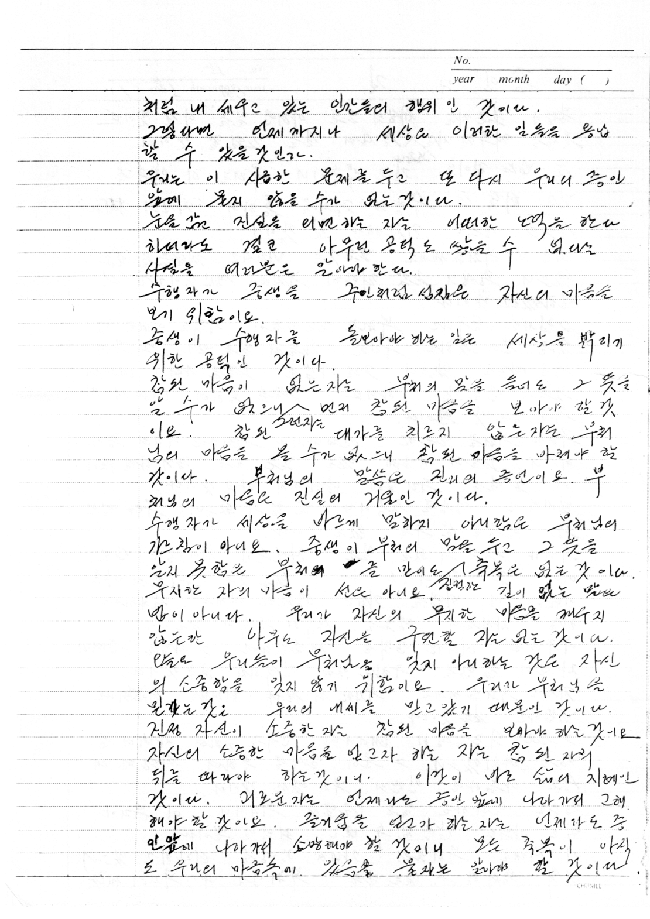 No.
year month day ( )
처럼 내 세우고 있는 인간들의 행위인 것이다.
그렇다면 언제까지나 세상은 이러한 일들을 용납
할 수 있을것인가.
우리는 이 사소한 문제를 두고 또 다시 우리의 증인
앞에 묻지 않을 수가 없는것이다.
눈을 감고 진실을 외면하는 자는 어떠한 노력을 한다
하더라도 결코 아무런 공덕도 쌓을 수 없다는
사실을 여러분은 알아야 한다.
수행자가 중생을 주인처럼 섬김은 자신의 마음을
보기 위함이요.
중생이 수행자를 돌보아야 하는 일은 세상을 밝히기
위한 공덕인 것이다.
참된 마음이 없는자는 부처의 말을 들어도 그 뜻을
알 수가 없으니 먼저 참된 마음을 보아야 할것
이요. 참된 대가를 치르지 않는자는 부처
님의 마음을 볼 수가 없으니 참된 마음을 아껴야 할
것이다. 부처님의 말씀은 진리의 증언이요. 부
처님의 마음은 진실의 거울인 것이다.
수행자가 세상을 바르게 말하지 아니함은 부처님의
가르침이 아니요. 중생이 부처의 말을 두고 그 뜻을
알지 못함은 부처를 만나도 축복은 없는것이다.
무지한 자의 마음이 선은 아니요. 진실은 길이 없는 말은
법이 아니다. 우리가 자신의 무지한 마음을 깨우지
않는한 아무도 자신을 구원할 자는 없는 것이다.
오늘도 우리들이 부처님을 잊지 아니하는 것은 자신
의 소중함을 잊지 않기 위함이요. 우리가 부처님을
믿는것은 우리의 내세를 믿고있기 때문인 것이다.
진정 자신이 소중한자는 참된 마음을 보아야 하는것이요
자신의 소중한 마음을 얻고자 하는 자는 참된 자의
뒤를 따라야 하는것이니. 이것이 바로 삶의 지혜인
것이다. 괴로운자는 언제라도 증인 앞에 나가 거듭 고해
해야 할것이요. 즐거움을 얻고자 하는자는 언제라도 증
인앞에 나가서 소망해야 할 것이니 모든 축복이 아직
도 우리의 마음속에 있음을 묻는자는 알아야 할 것이다.